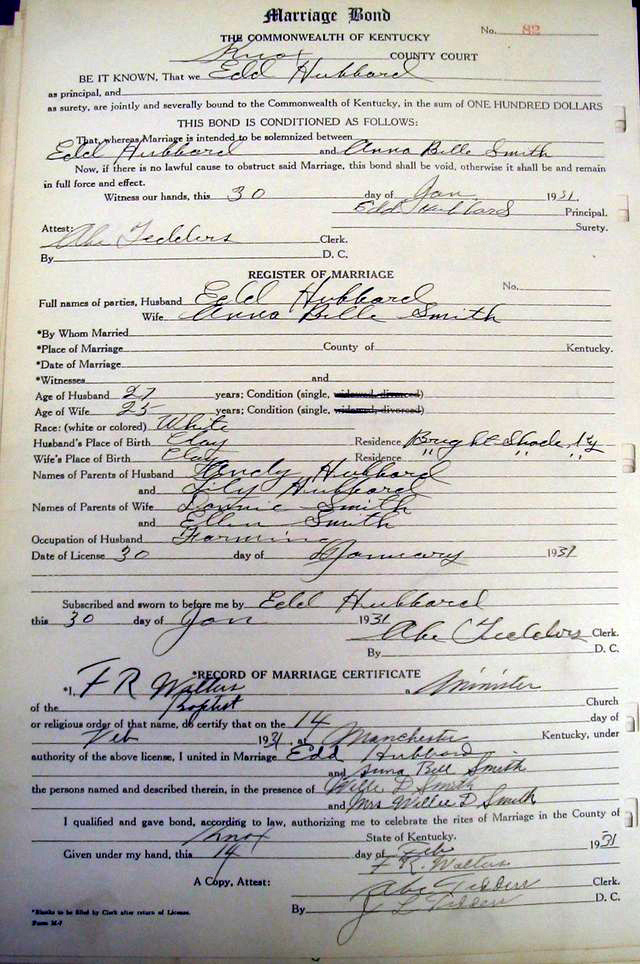 Marriage Bond
No. 82
THE COMMONWEALTH OF KENTUCKY
Knox COUNTY COURT
BE IT KNOWN, That we Edd Hubbard
as principal, and
as surety, are jointly and severally bound to the Commonwealth of Kentucky, in the sum of ONE HUNDRED DOLLARS
THIS BOND IS CONDITIONED AS FOLLOWS:
That, whereas Marriage is intended to be solemnized between
Edd Hubbard and Anna Bille Smith
Now, if there is no lawful cause to obstruct said Marriage, this bond shall be void, otherwise it shall be and remain
in full force and effect.
Witness our hands, this 30 day of Jan 1931.
Edd Hubbard Principal.
Attest: Surety.
Abe Tedders Clerk.
By D. C.
REGISTER OF MARRIAGE
No.
Full names of parties, Husband Edd Hubbard
Wife Anna Bille Smith
*By Whom Married
*Place of Marriage County of Kentucky.
*Date of Marriage
*Witnesses and
Age of Husband 27 years; Condition (single, widowed, divorced)
Age of Wife 25 years; Condition (single, widowed, divorced)
Race: (white or colored) White
Husband's Place of Birth Clay Residence Bright Shade, Ky
Wife's Place of Birth Clay Residence " " "
Names of Parents of Husband Hubbard
and Hubbard
Names of Parents of Wife Smith
and Ellen Smith
Occupation of Husband Farming
Date of License 30 day of January 1931
Subscribed and sworn to before me by Edd Hubbard
this 30 day of Jan 1931
Abe Tedders Clerk.
By D. C.
*RECORD OF MARRIAGE CERTIFICATE
*I, F R Walters a Minister
of the Baptist Church
or religious order of that name, do certify that on the 14 day of
Feb 1931, at Manchester Kentucky, under
authority of the above license, I united in Marriage Edd Hubbard
and Anna Bell Smith
the persons named and described therein, in the presence of Willie D Smith
and Mrs Willie D Smith
I qualified and gave bond, according to law, authorizing me to celebrate the rites of Marriage in the County of
Knox State of Kentucky.
Given under my hand, this 14 day of Feb 1931
F R. Walters
A Copy, Attest: Abe Tedders Clerk.
By J L Tedders D. C.
*Blanks to be filled by Clerk after return of License.
Form M-7